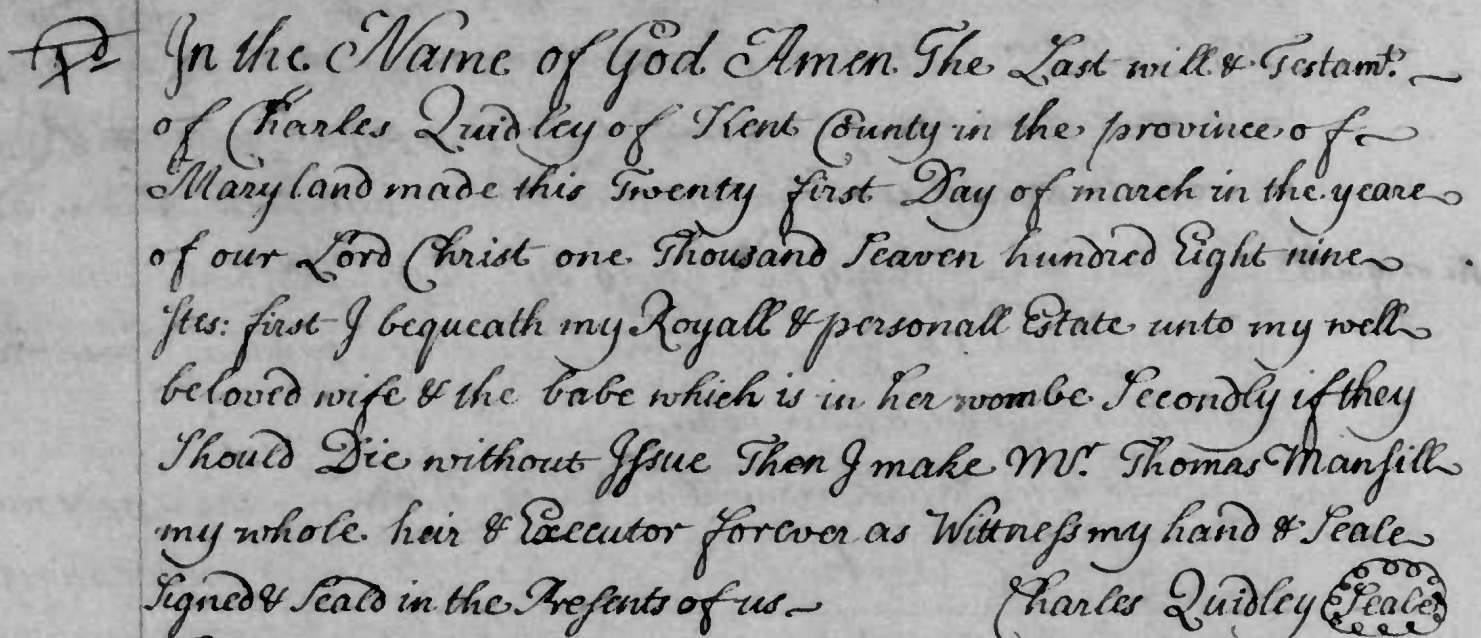 In the Name of God Amen The Last will & Testamt.
of Charles Quidley of Kent County in the province of
Maryland made this Twenty first Day of march in the yeare
of our Lord Christ one Thousand Seaven hundred Eight nine
first I bequeath my Royall & personall Estate unto my well
beloved wife & the babe which is in her wombe Secondly if they
Should Die without Issue Then I make Mr. Thomas Mansill
my whole heir & Executor forever as Wittness my hand & Seale
Signed & Seald in the Presents of us Charles Quidley Seale